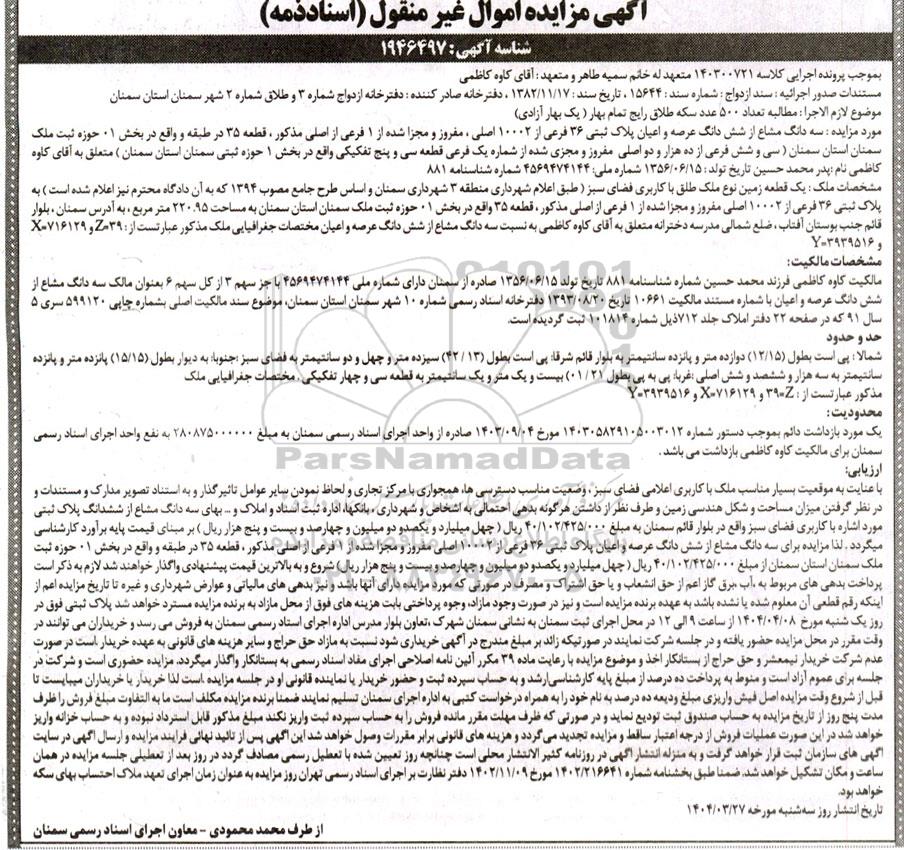 آگهی مزایده اموال غیر منقول (اسنادذمه)
شناسه آگهی: ۱۹۴۶۴۹۷
بموجب پرونده اجرایی کلاسه ۱۴۰۳۰۰۷۲۱ متعهد له خانم سمیه طاهر و متعهد: آقای کاوه کاظمی
مستندات صدور اجرائیه: سند ازدواج: شماره سند: ۱۵۶۴۴، تاریخ سند: ۱۳۸۲/۱۱/۱۷، دفترخانه صادر کننده: دفترخانه ازدواج شماره ۳ و طلاق شماره ۲ شهر سمنان استان سمنان
موضوع لازم الاجرا: مطالبه تعداد ۵۰۰ عدد سکه طلای رایج تمام بهار (یک بهار آزادی)
مورد مزایده: سه دانگ مشاع از شش دانگ عرصه و اعیان پلاک ثبتی ۳۶ فرعی از ۱۰۰۰۲ اصلی، مفروز و مجزا شده از ۱ فرعی از اصلی مذکور، قطعه ۳۵ در طبقه و واقع در بخش ۰۱ حوزه ثبت ملک
سمنان استان سمنان (سی و شش فرعی از ده هزار و دو اصلی مفروز و مجزی شده از شماره یک فرعی قطعه سی و پنج تفکیکی واقع در بخش ۱ حوزه ثبتی سمنان استان سمنان) متعلق به آقای کاوه
کاظمی نام :پدر محمد حسین تاریخ تولد: ۱۳۵۶/۰۶/۱۵ شماره ملی: ۴۵۶۹۴۷۴۱۴۴ شماره شناسنامه ۸۸۱
مشخصات ملک: یک قطعه زمین نوع ملک طلق با کاربری فضای سبز (طبق اعلام شهرداری منطقه ۳ شهرداری سمنان و اساس طرح جامع مصوب ۱۳۹۴ که به آن دادگاه محترم نیز اعلام شده است) به
پلاک ثبتی ۳۶ فرعی از ۱۰۰۰۲ اصلی مفروز و مجزا شده از ۱ فرعی از اصلی مذکور، قطعه ۳۵ واقع در بخش ۰۱ حوزه ثبت ملک سمنان استان سمنان به مساحت ۲۲۰.۹۵ متر مربع، به آدرس سمنان، بلوار
قائم جنب بوستان آفتاب، ضلع شمالی مدرسه دخترانه متعلق به آقای کاوه کاظمی به نسبت سه دانگ مشاع از شش دانگ عرصه و اعیان مختصات جغرافیایی ملک مذکور عبارتست از: Z=۳۹ و X=۷۱۶۱۲۹
و Y=۳۹۳۹۵۱۶
مشخصات مالکیت:
مالکیت کاوه کاظمی فرزند محمد حسین شماره شناسنامه ۸۸۱ تاریخ تولد ۱۳۵۶/۰۶/۱۵ صادره از سمنان دارای شماره ملی ۴۵۶۹۴۷۴۱۴۴ با جز سهم ۳ از کل سهم ۶ بعنوان مالک سه دانگ مشاع از
شش دانگ عرصه و اعیان با شماره مستند مالکیت ۱۰۶۶۱ تاریخ ۱۳۹۳/۰۸/۲۰ دفترخانه اسناد رسمی شماره ۱۰ شهر سمنان استان سمنان، موضوع سند مالکیت اصلی بشماره چاپی ۵۹۹۱۲۰ سری ۵
سال ۹۱ که در صفحه ۲۲ دفتر املاک جلد ۷۱۲ ذیل شماره ۱۰۱۸۱۴ ثبت گردیده است.
حد و حدود
شمالا: پی است بطول (۱۲/۱۵) دوازده متر و پانزده سانتیمتر به بلوار قائم شرقا: پی است بطول (۱۳ / ۴۲) سیزده متر و چهل و دو سانتیمتر به فضای سبز :جنوبا: به دیوار بطول (۱۵/۱۵) پانزده متر و پانزده
سانتیمتر به سه هزار و ششصد و شش اصلی :غربا: پی به پی بطول (۲۱ / ۰۱) بیست و یک متر و یک سانتیمتر به قطعه سی و چهار تفکیکی. مختصات جغرافیایی ملک
مذکور عبارتست از: Z=۳۹ و X=۷۱۶۱۲۹ و Y=۳۹۳۹۵۱۶
محدودیت:
یک مورد بازداشت دائم بموجب دستور شماره ۱۴۰۳۰۵۸۲۹۱۰۵۰۰۳۰۱۲ مورخ ۱۴۰۳/۰۹/۰۴ صادره از واحد اجرای اسناد رسمی سمنان به مبلغ ۲۸۰۸۷۵۰۰۰۰۰۰ به نفع واحد اجرای اسناد رسمی
سمنان برای مالکیت کاوه کاظمی بازداشت می باشد.
ارزیابی:
با عنایت به موقعیت بسیار مناسب ملک با کاربری اعلامی فضای سبز، وضعیت مناسب دسترسی ها، همجواری با مرکز تجاری و لحاظ نمودن سایر عوامل تاثیرگذار و به استناد تصویر مدارک و مستندات و
در نظر گرفتن میزان مساحت و شکل هندسی زمین و طرف نظر از داشتن هرگونه بدهی احتمالی به اشخاص و شهرداری، بانکها، اداره ثبت اسناد و املاک و ... بهای سه دانگ مشاع از ششدانگ پلاک ثبتی
مورد اشاره با کاربری فضای سبز واقع در بلوار قائم سمنان به مبلغ ۴۰/۱۰۲/۴۲۵/۰۰۰ ریال (چهل میلیارد و یکصدو دو میلیون و چهارصد و بیست و پنج هزار ریال) بر مبنای قیمت پایه برآورد کارشناسی
میگردد. لذا مزایده برای سه دانگ مشاع از شش دانگ عرصه و اعیان پلاک ثبتی ۳۶ فرعی از ۱۰۰۰۲ اصلی مفروز و مجزا شده از ۱ فرعی از اصلی مذکور، قطعه ۳۵ در طبقه و واقع در بخش ۰۱ حوزه ثبت
ملک سمنان استان سمنان از مبلغ ۴۰/۱۰۲/۴۲۵/۰۰۰ ریال (چهل میلیارد و یکصد و دو میلیون و چهارصد و بیست و پنج هزار ریال) شروع و به بالاترین قیمت پیشنهادی واگذار خواهند شد لازم به ذکر است
پرداخت بدهی های مربوط به آب، برق گاز اعم از حق انشعاب و یا حق اشتراک و مصرف در صورتی که مورد مزایده دارای آنها باشد و نیز بدهی های مالیاتی و عوارض شهرداری و غیره تا تاریخ مزایده اعم از
اینکه رقم قطعی آن معلوم شده یا نشده باشد به عهده برنده مزایده است و نیز در صورت وجود مازاد، وجوه پرداختی بابت هزینه های فوق از محل مازاد به برنده مزایده مسترد خواهد شد پلاک ثبتی فوق در
روز یک شنبه مورخ ۱۴۰۴/۰۴/۰۸ از ساعت ۹ الی ۱۲ در محل اجرای ثبت سمنان به نشانی سمنان شهرک ،تعاون بلوار مدرس اداره اجرای اسناد رسمی سمنان به فروش می رسد و خریداران می توانند در
وقت مقرر در محل مزایده حضور یافته و در جلسه شرکت نمایند در صورتیکه زائد بر مبلغ مندرج در آگهی خریداری شود نسبت به مازاد حق حراج و سایر هزینه های قانونی به عهده خریدار .است در صورت
عدم شرکت خریدار نیمعشر و حق حراج از بستانکار اخذ و موضوع مزایده با رعایت ماده ۳۹ مکرر آئین نامه اصلاحی اجرای مفاد اسناد رسمی به بستانکار واگذار میگردد. مزایده حضوری است و شرکت در
جلسه برای عموم آزاد است و منوط به پرداخت ده درصد از مبلغ پایه کارشناسی/رشد و به حساب سپرده ثبت و حضور خریدار یا نماینده قانونی او در جلسه مزایده .است لذا خریدار یا خریداران میبایست تا
قبل از شروع وقت مزایده اصل فیش واریزی مبلغ ودیعه ده درصد به نام خود را به همراه درخواست کتبی به اداره اجرای سمنان تسلیم نمایند ضمنا برنده مزایده مکلف است ما به التفاوت مبلغ فروش را ظرف
مدت پنج روز از تاریخ مزایده به حساب صندوق ثبت تودیع نماید و در صورتی که ظرف مهلت مقرر مانده فروش را به حساب سپرده ثبت واریز نکند مبلغ مذکور قابل استرداد نبوده و به حساب خزانه واریز
خواهد شد در این صورت عملیات فروش از درجه اعتبار ساقط و مزایده تجدید می‌گردد و هزینه های قانونی برابر مقررات وصول خواهد شد این آگهی پس از تائید نهائی فرایند مزایده و ارسال آگهی در سایت
آگهی های سازمان ثبت قرار خواهد گرفت و به منزله انتشار آگهی در روزنامه کثیر الانتشار محلی است چنانچه روز تعیین شده با تعطیل رسمی مصادف گردد در روز بعد از تعطیلی جلسه مزایده در همان
ساعت و مکان تشکیل خواهد شد. ضمنا طبق بخشنامه شماره ۱۴۰۲/۲۱۶۶۴۱ مورخ ۱۴۰۲/۱۱/۰۹ دفتر نظارت بر اجرای اسناد رسمی تهران روز مزایده به عنوان زمان اجرای تعهد ملاک احتساب بهای سکه
خواهد بود.
تاریخ انتشار روز سه‌شنبه مورخه ۱۴۰۴/۰۳/۲۷
از طرف محمد محمودی - معاون اجرای اسناد رسمی سمنان
ParsNamadData